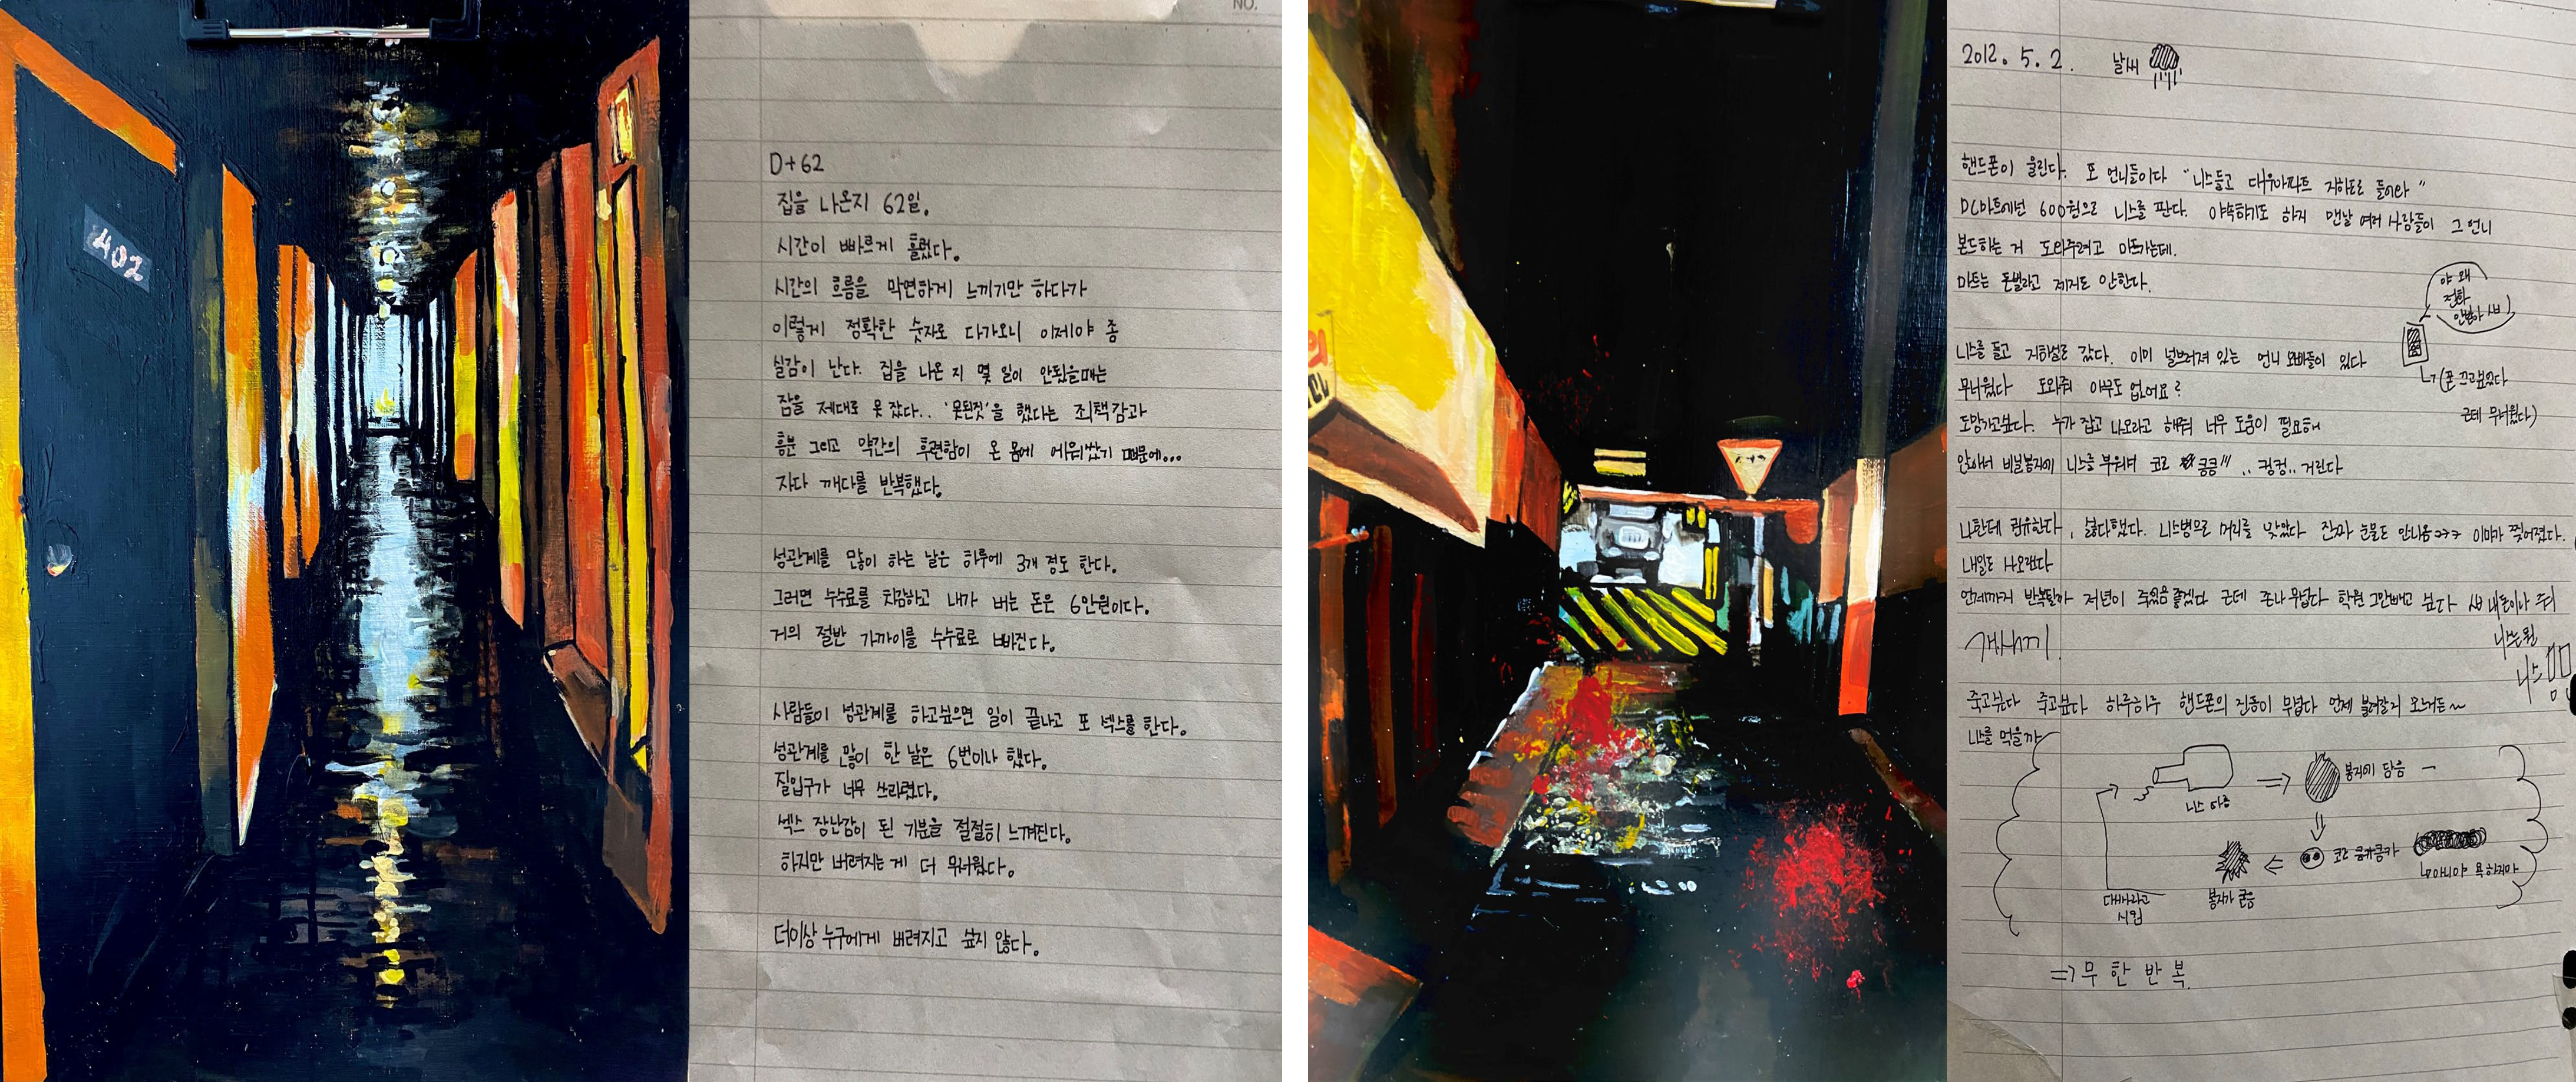 402
NO.
D+62
집을 나온지 62일.
시간이 빠르게 흘렀다.
시간의 흐름을 막연하게 느끼기만 하다가
이렇게 정확한 숫자로 다가오니 이제야 좀
실감이 난다. 집을 나온 지 몇 일이 안됬을때는
잠을 제대로 못 잤다.. '못된짓'을 했다는 죄책감과
흥분 그리고 약간의 후련함이 온 몸에 에워쌌기 때문에...
자다 깨다를 반복했다.
성관계를 많이 하는 날은 하루에 3개 정도 한다.
그러면 수수료를 차감하고 내가 버는 돈은 6만원이다.
거의 절반 가까이를 수수료로 빠진다.
사람들이 성관계를 하고싶으면 일이 끝나고 또 섹스를 한다.
성관계를 많이 한 날은 6번이나 했다.
질입구가 너무 쓰라렸다.
섹스 장난감이 된 기분을 절절히 느껴진다.
하지만 버려지는 게 더 무서웠다.
더이상 누구에게 버려지고 싶지 않다.
2012. 5. 2. 날씨
핸드폰이 울린다. 또 언니들이다 "니스들고 대우아파트 지하로 들어와"
DC마트에선 600원으로 니스를 판다. 야속하기도 하지 맨날 여러 사람들이 그 언니
본드하는 거 도와주려고 마트가는데.
마트는 돈벌라고 제지도 안한다.
야 왜
전화
안받아
니스를 들고 지하실로 갔다. 이미 널브러져 있는 언니 오빠들이 있다
무서웠다 도와줘 아무도 없어요?
(폰 끄고싶었다
근데 무서웠다)
도망가고싶다. 누가 잡고 나오라고 해줘 너무 도움이 필요해
앉아서 비닐봉지에 니스를 부워서 코로 킁킁!!! .. 킁킁.. 거린다
나한테 권유한다, 싫다했다. 니스병으로 머리를 맞았다 진짜 눈물도 안나옴 ㅋㅋㅋ 이마가 찢어졌다.
내일도 나오랬다
언제까지 반복될까 저년이 죽었음 좋겠다 근데 존나 무섭다 학원 그만빼고 싶다 내돈이나 줘
개새끼.
니스는뭔
죽고싶다 죽고싶다 하루하루 핸드폰의 진동이 무섭다 언제 불려갈지 모르거든~
니스를 먹을까
니스 따름
봉지에 담음
코로 킁카킁카
아니야 욕하지마
봉지가 굳음
대사라고
시킴
=> 무 한 반 복.